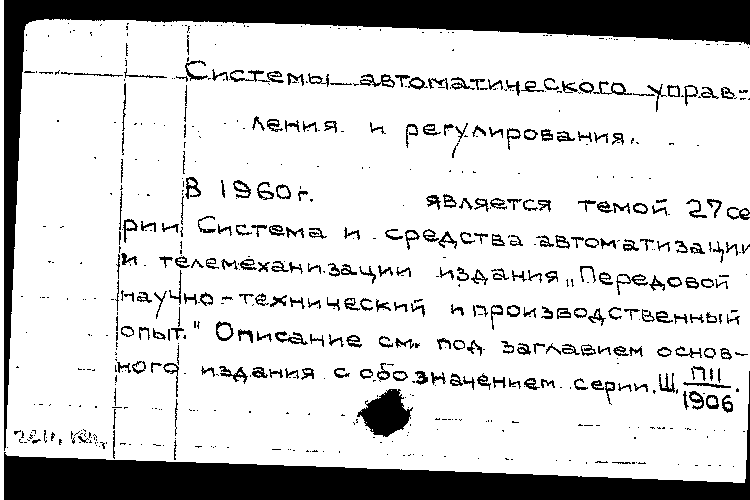 Системы автоматического управ-
ления и регулирования.
В 1960г. является темой 27 се
рии Система и средства автоматизации
и телемеханизации издания „Передовой
научно-технический и производственный
опыт." Описание см. под заглавием основ-
ного издания с обозначением серии. Ш П11
1906.